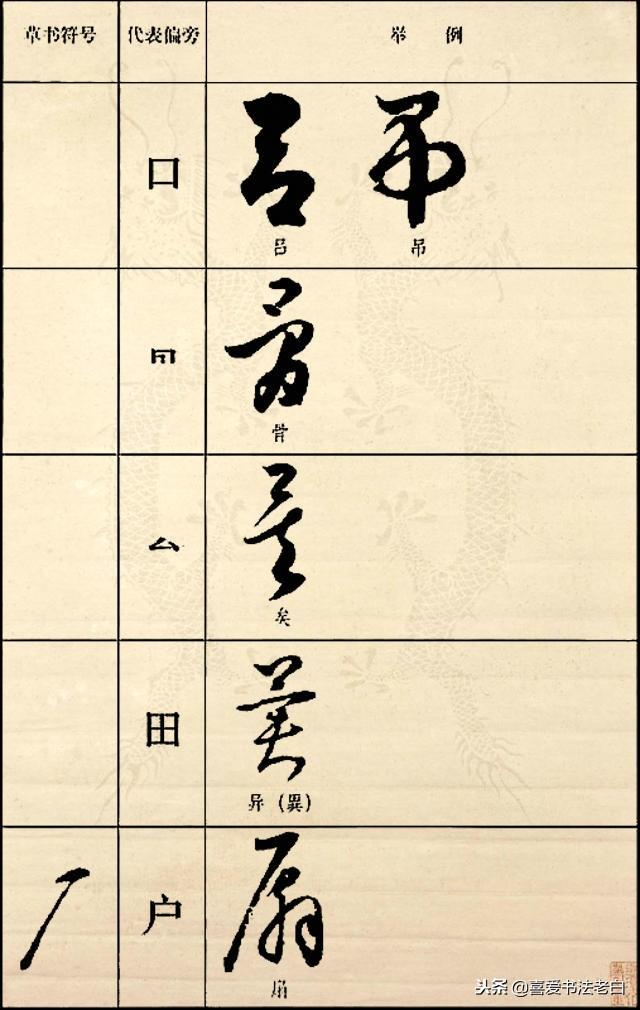 草书符号 代表偏旁 举例
口 吕 吊
吕 吊
骨
骨
厶 矣
矣
田 異
异(異)
户 扇
扇
头条 @喜爱书法老白